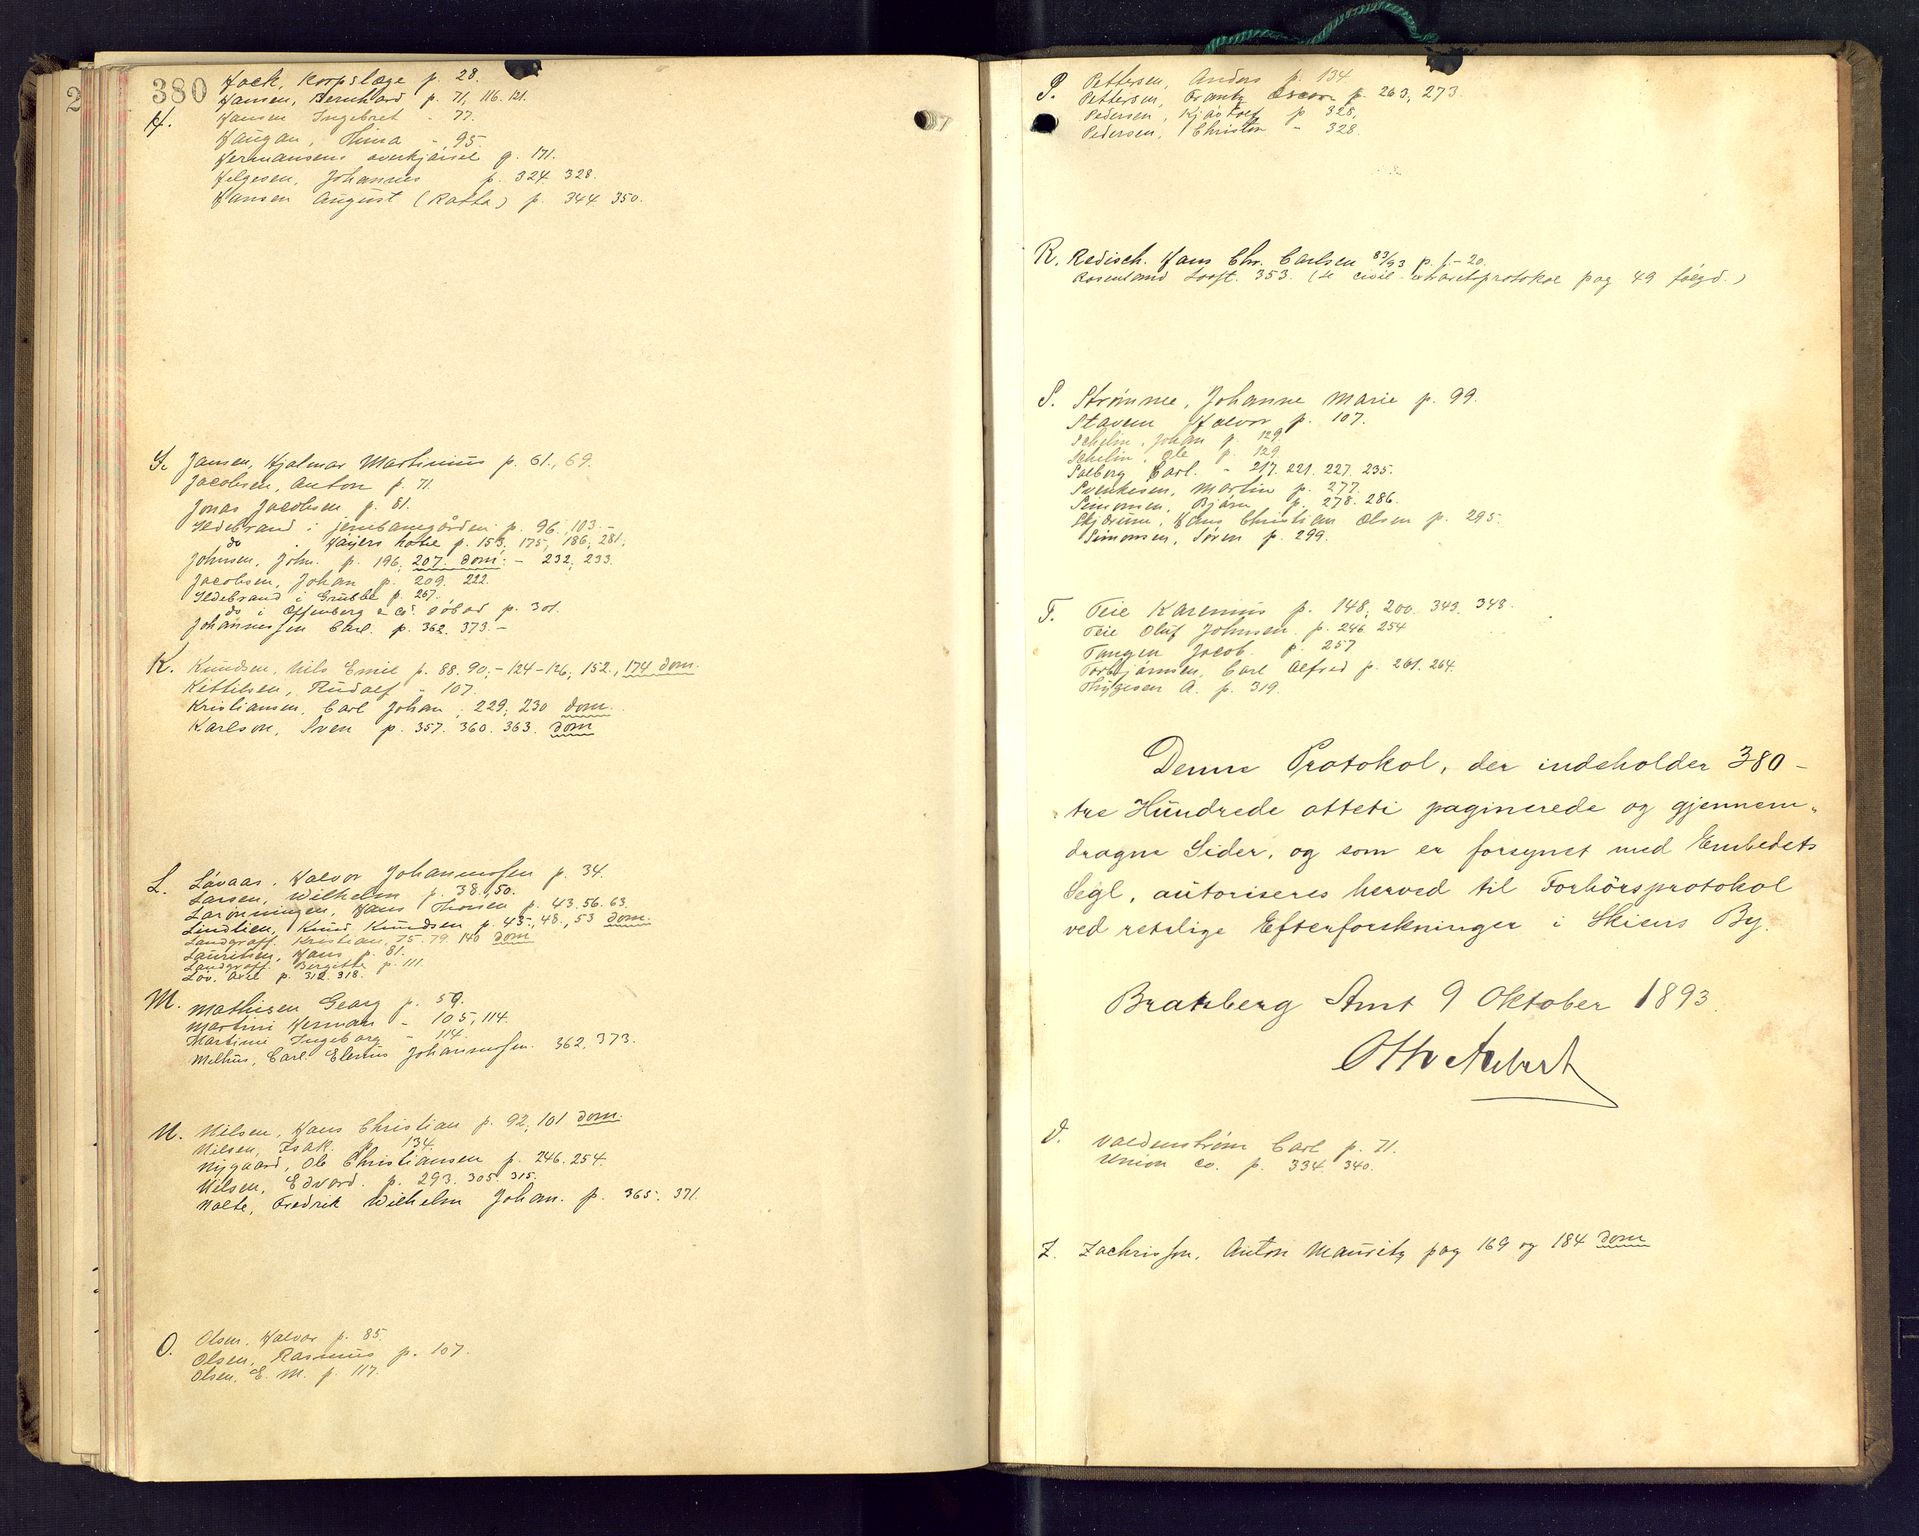 380
H.
Hock, Korpslæge p. 28.
Hansen, Bernhard p. 71, 116. 121.
Hansen Ingebret - 77.
Haugan, Hima - 95.
Hermansens overkjørsel p. 171.
Helgesen, Johannes p. 324. 328.
Hansen August (Rotta) p. 344. 350.
J. Jansen, Hjalmar Martinius p. 61., 69.
Jacobsen, Anton p. 71.
Jonas Jacobsen p. 81.
Ildebrand i jernbanegården p. 96, 103.-
do - Høiers hotel p. 153, 175, 186, 281.
Johnsen, John. p. 196, 207. dom. - 232, 233.
Jacobsen, Johan p. 209. 222.
Ildebrand i Grubbe p. 267.
do i Offenberg & Co's p. 301.
Johannessen Carl. p. 362. 373.-
K. Knudsen, Nils Emil p. 88. 90,- 124-126, 152., 174 dom.
Kittilsen, Rudolf - 107.
Kristiansen, Carl Johan, 229, 230 dom.
Karlson, Sven p. 357. 360. 363. dom
L. Løvaas, Halvor Johannessen p. 34.
Larsen, Wilhelm p. 38, 50.
Larønningen, Hans Thorsen p. 43. 56. 63.
Lindlien, Knud Knudsen p. 45, 48, 53 dom.
Landgraff. Kristian. 75. 79. 140 dom
Lauritsen, Hans p. 81.
Landgraff Bergitte p. 111.
Lov. Axel p. 312. 318.
M. Mathisen Georg p. 59.
Martini Herman - 105, 114.
Martini Ingeborg - 114.
Melhus, Carl Elenius Johannessen. 362, 373.
N. Nilsen, Hans Christian p. 92, 101 dom.
Nilsen, Isak. p. 134.
Nygaard, Ole Christiansen p. 246. 254.
Nilsen, Edvard. p. 293. 305. 315.
Nolte, Fredrik Wilhelm Johan. p. 365. 371.
O. Olsen. Halvor p. 85.
Olsen, Rasmus p. 107.
Olsen. E. M. p. 117.
P. Pettersen, Anders p. 134
Pettersen, Frantz Oscar p. 263, 273.
Pedersen, Kjøstolf p 328,
Pedersen, Christen - 328.
R. Redisch. Hans Chr. Carlsen 83/93 p. 1.-20.
Rosenlund Looft. 353. (se civil protokol pag 49 følgd.)
S. Strømme, Johanne Marie p. 99.
Stavem Halvor p. 107.
Schelin, Johan p. 129.
Schelin, Ole p. 129.
Solberg Carl. - 217. 221. 227. 235.
Svenkesen, Martin p. 277.
Simonsen, Bjørn p. 278. 286.
Skjørum, Hans Christian Olsen p. 295.
Simonsen, Søren p. 299.
T. Teie Karenius p. 148, 200. 343. 348.
Teie Oluf Johnsen. p. 246. 254
Tangen Jacob. p. 257
Torbjørnsen, Carl Alfred p. 261. 264.
Thygesen A. p. 319.
Denne Protokol, der indeholder 380 -
tre Hundrede otteti paginerede og gjennem-
dragne Sider, og som er forsynet med Embedets
Segl, autoriseres herved til Forhørsprotokol
ved retslige Efterforskninger i Skiens By.
Bratsberg Amt 9 Oktober 1893.
Otto Aubert
V. Valdenstrøm Carl p. 71.
Union Co. p. 334. 340.
Z. Zachrissen, Anton Mauritz pag 169 og 184 dom